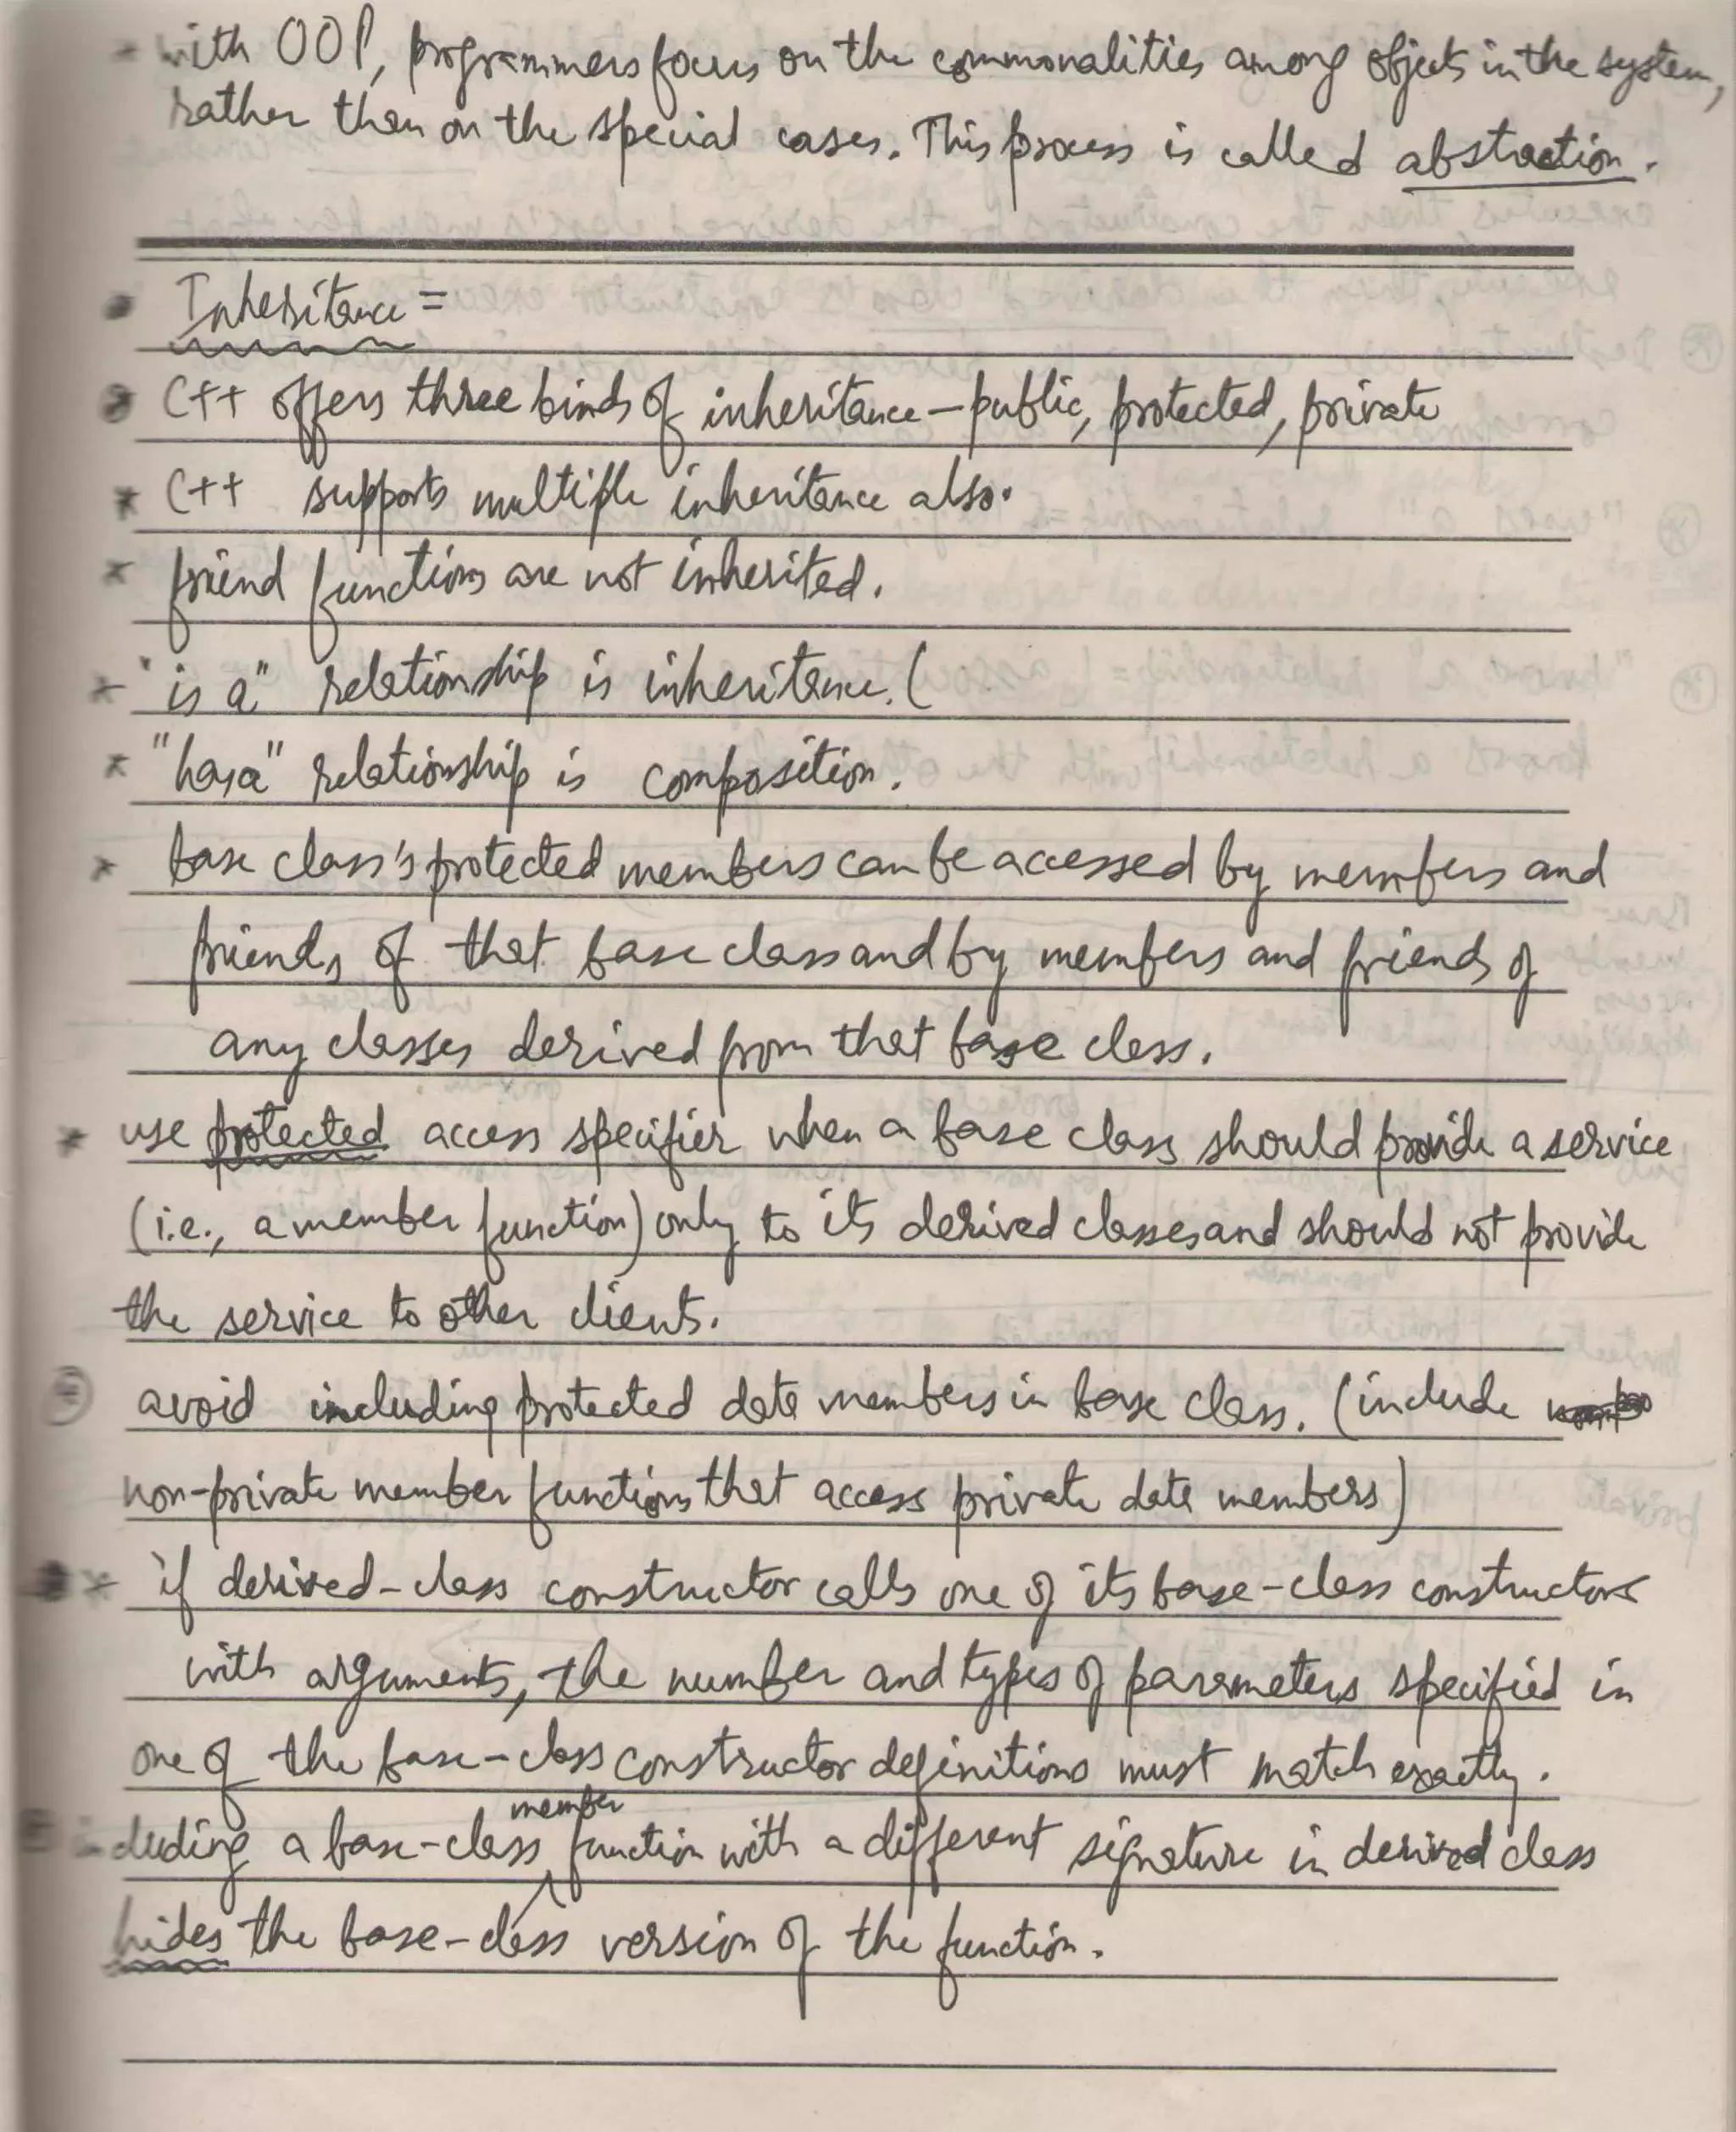 * with OOP, programmers focus on the commonalities among objects in the system,
rather than on the special cases. This process is called abstraction.
• Inheritance =
* C++ offers three kinds of inheritance – public, protected, private
* C++ supports multiple inheritance also.
* friend functions are not inherited.
* "is a" relationship is inheritance. (
* "has a" relationship is composition.
* base class's protected members can be accessed by members and
friends of that base class and by members and friends of
any classes derived from that base class.
* use protected access specifier when a base class should provide a service
(i.e., a member function) only to its derived classes and should not provide
the service to other clients.
* avoid including protected data members in base class. (include
non-private member functions that access private data members)
* if derived-class constructor calls one of its base-class constructors
with arguments, the number and types of parameters specified in
one of the base-class constructor definitions must match exactly.
* including a base-class member function with a different signature in derived class
hides the base-class version of the function.